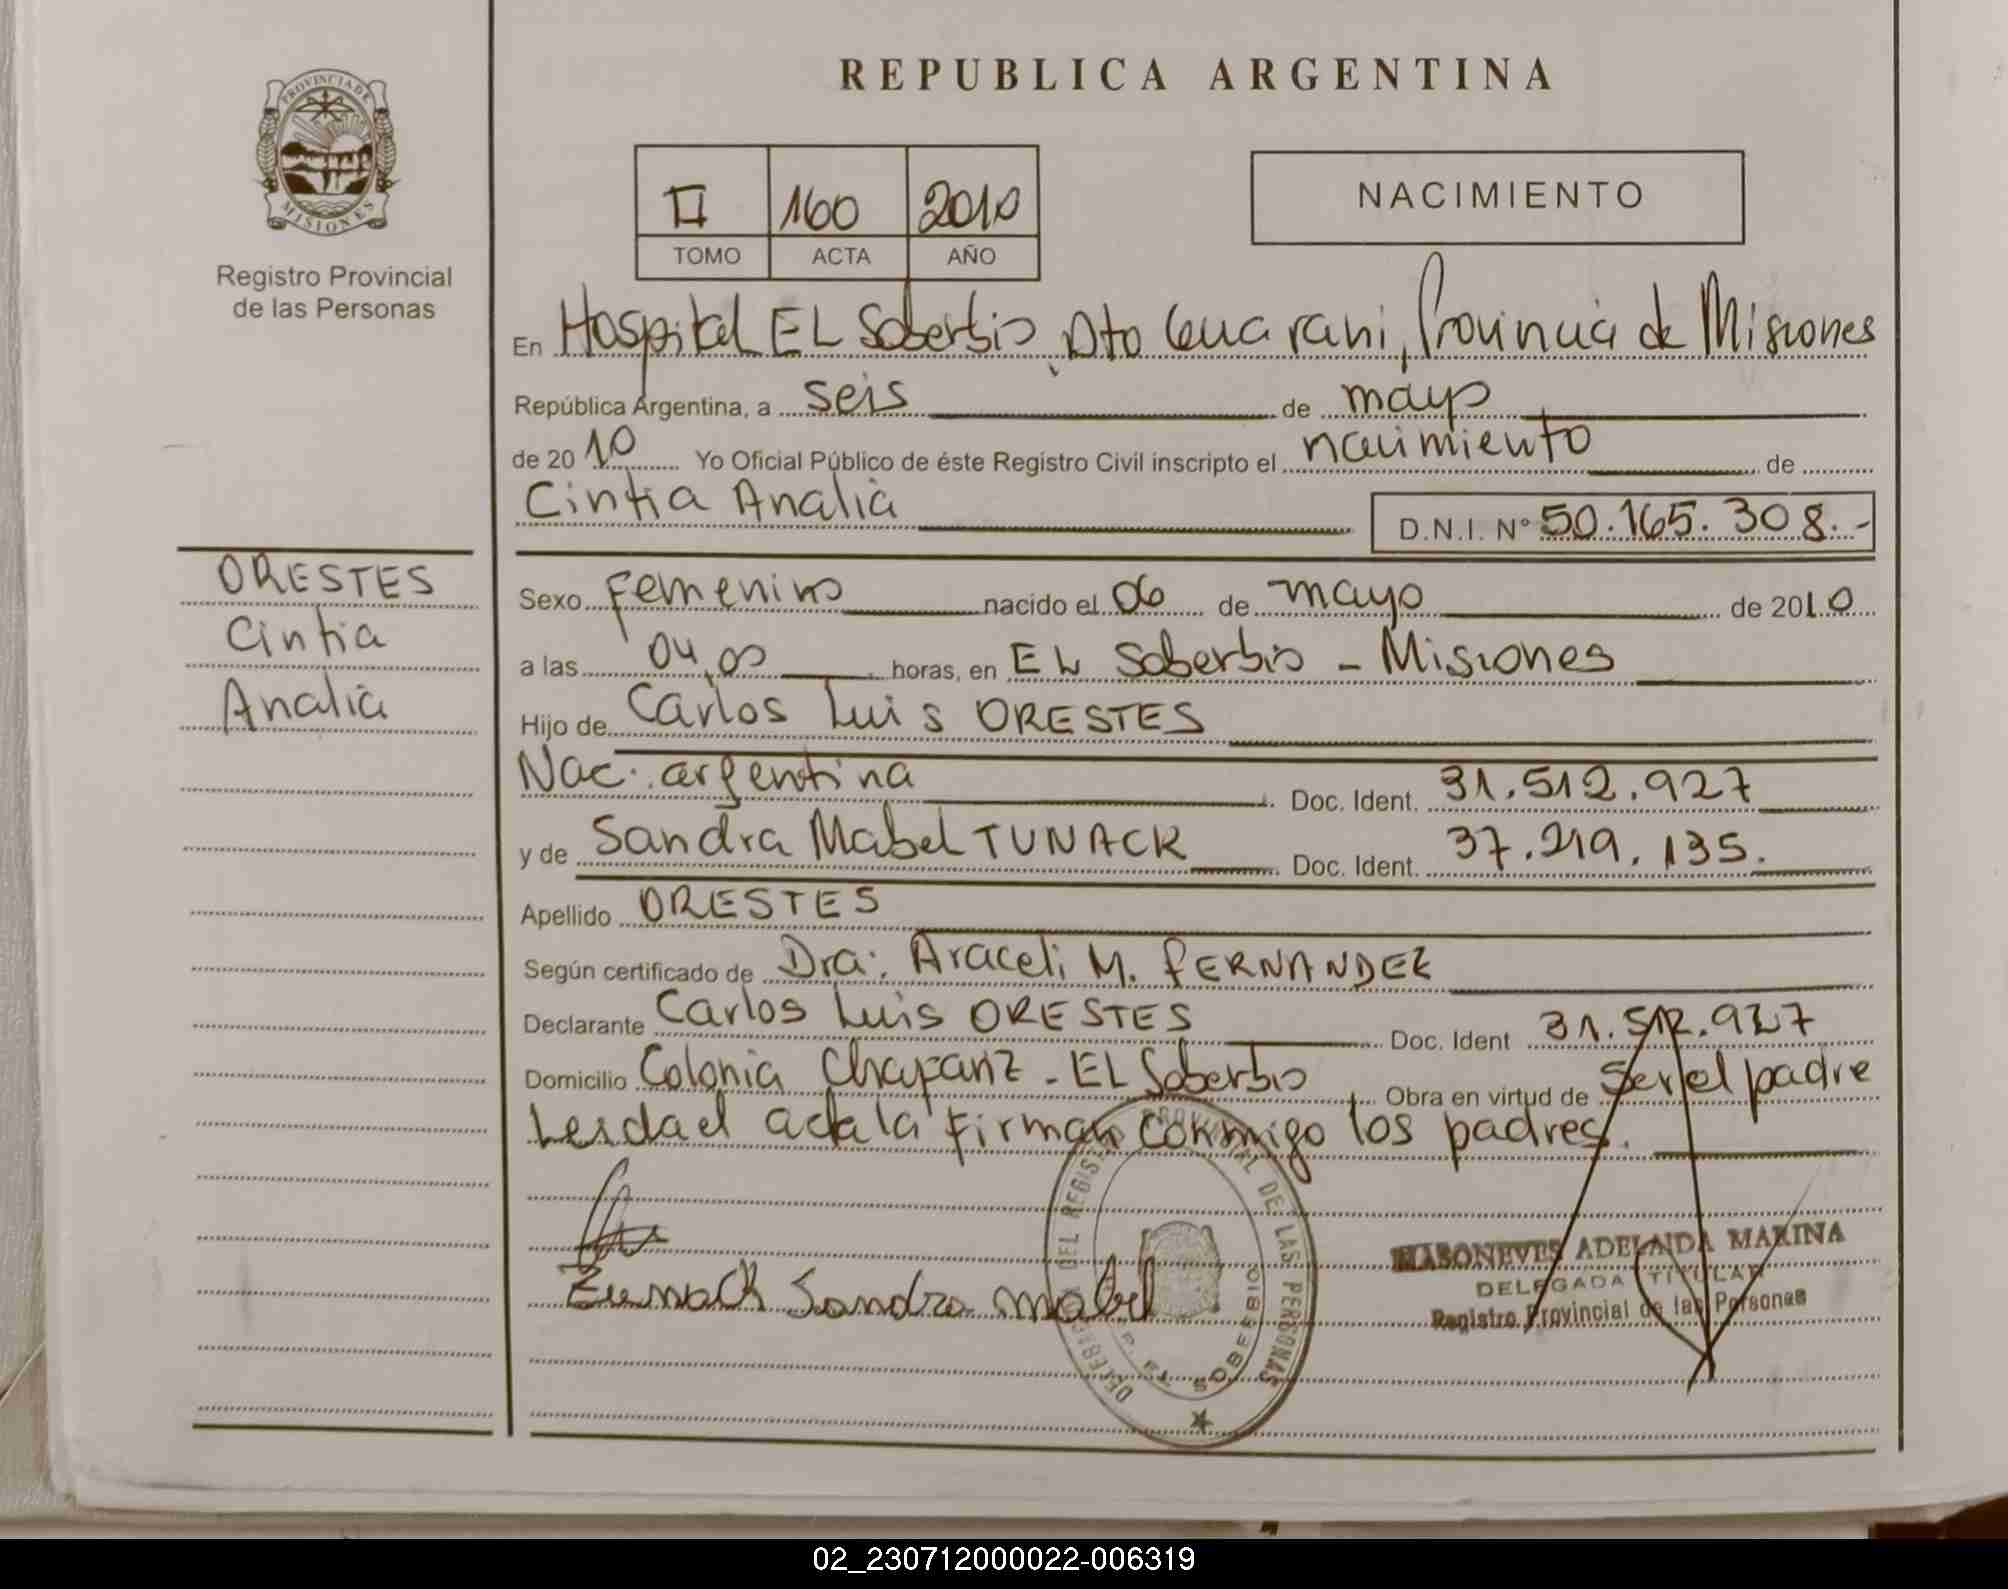 REPUBLICA ARGENTINA
PROVINCIA DE MISIONES
Registro Provincial
de las Personas
II 160 2010
TOMO ACTA AÑO
NACIMIENTO
En Hospital EL Soberbio, Dto Guarani, Provincia de Misiones
República Argentina, a seis de mayo
de 2010 Yo Oficial Público de éste Registro Civil inscripto el nacimiento de
Cintia Analia D.N.I. Nº 50.165.308.-
ORESTES
Cintia
Analia
Sexo Femenino nacido el 06 de mayo de 2010
a las 04,00 horas, en EL Soberbio - Misiones
Hijo de Carlos Luis ORESTES
Nac. argentina Doc. Ident. 31.512.927
y de Sandra Mabel TUNACK Doc. Ident. 37.219.135.
Apellido ORESTES
Según certificado de Dra: Araceli M. FERNANDEZ
Declarante Carlos Luis ORESTES Doc. Ident 31.512.927
Domicilio Colonia - EL Soberbio Obra en virtud de ser el padre
Leida el acta la firman conmigo los padres.
Sandra Mabel
DELEGACION DEL REGISTRO PROVINCIAL DE LAS PERSONAS
SOBERBIO
ADELAIDA MARINA
DELEGADA TITULAR
Registro Provincial de las Personas
02_230712000022-006319